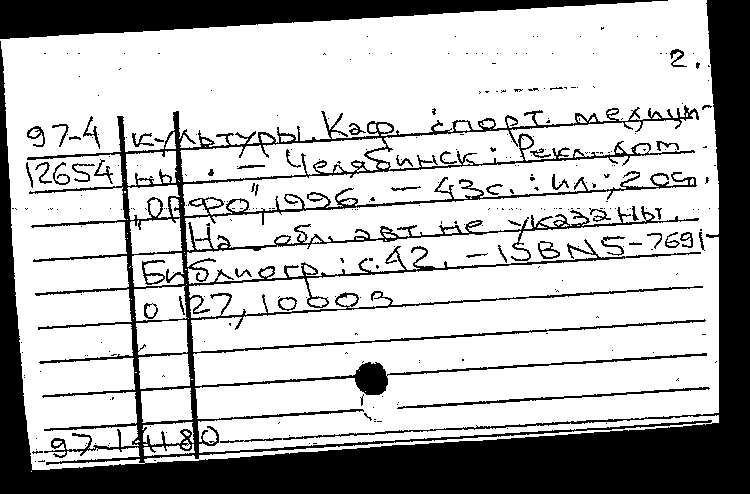 2.
97-4 культуры. Каф. спорт. медици-
12654 ны. – Челябинск : Рекл. дом
„ОРФО", 1996. – 43с. : ил.; 20см.
На обл. авт. не указаны.
Библиогр.: с.42. – ISBN 5-7691-
0127, 1000э
97-14180